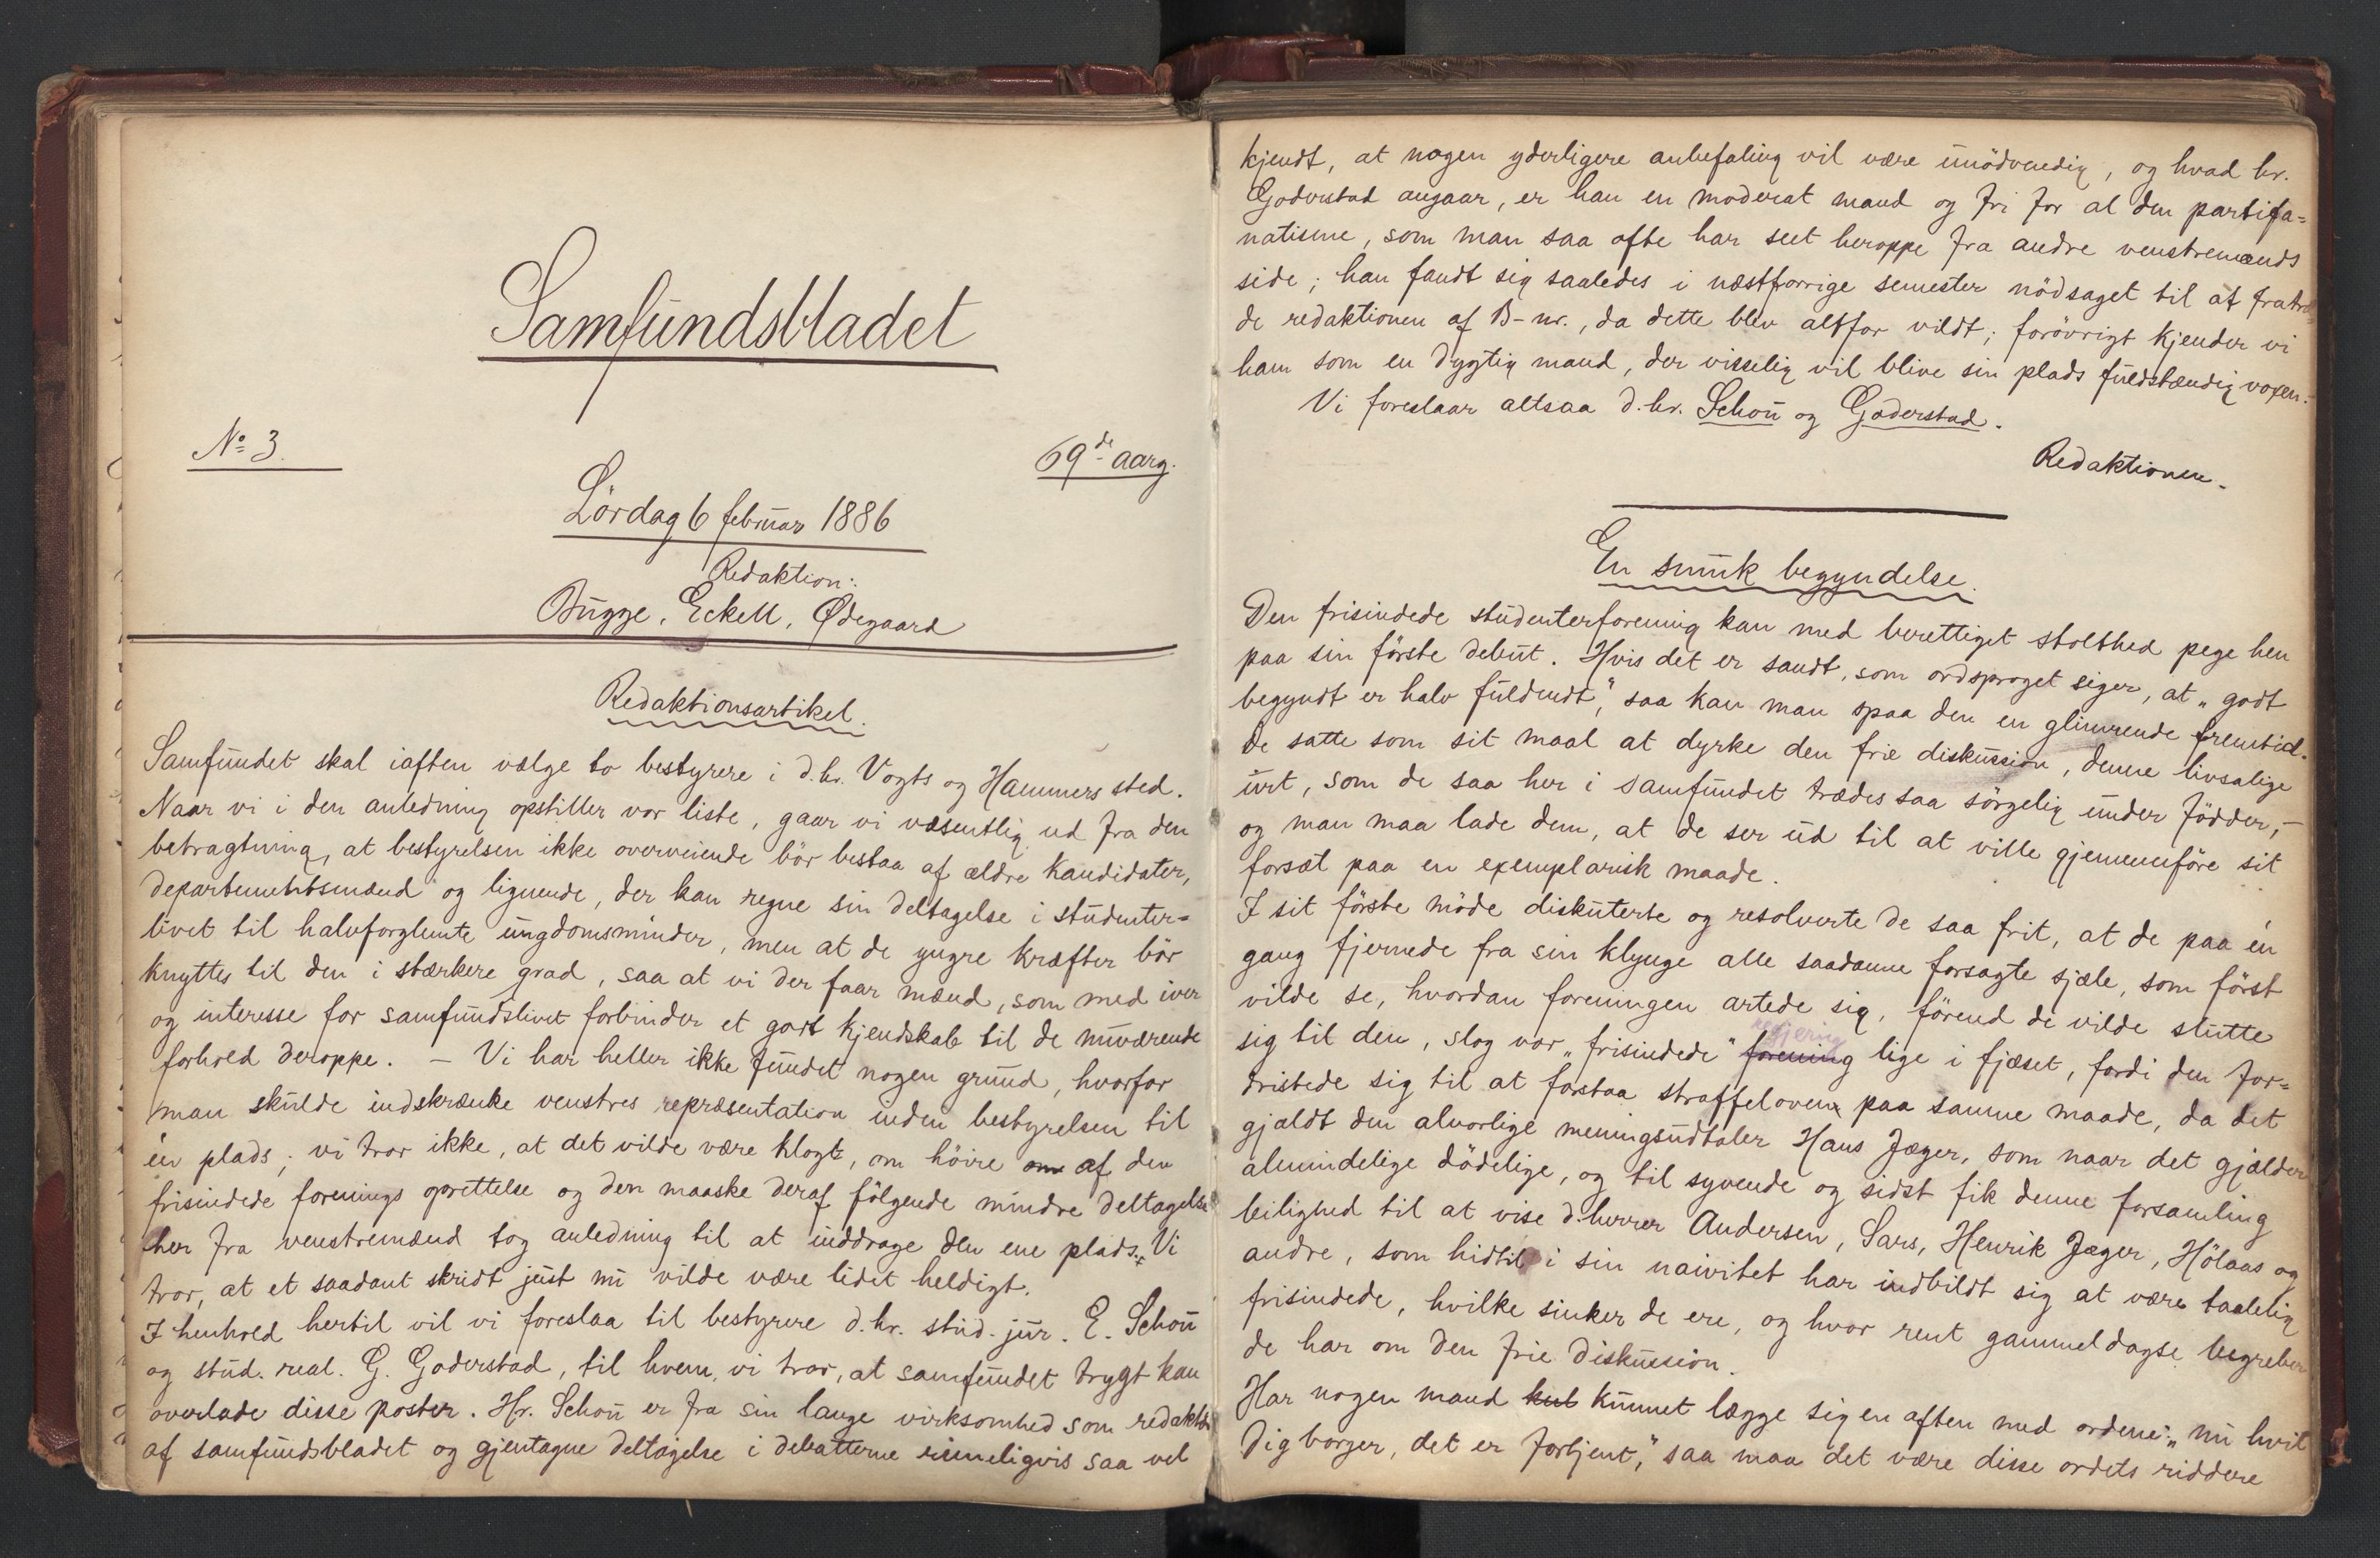 Samfundsbladet
No 3.
69de aarg.
Lördag 6 februar 1886
Redaktion:
Bugge, Eckell, Ødegaard
Redaktionsartikel.
Samfundet skal iaften vælge to bestyrere i d.hr. Vogts og Hammers sted.
Naar vi i den anledning opstiller vor liste, gaar vi væsentlig ud fra den
betragtning, at bestyrelsen ikke overveiende bör bestaa af ældre kandidater,
departementsmænd og lignende, der kan regne sin deltagelse i studenter=
livet til halvforglemte ungdomsminder, men at de yngre kræfter bör
knyttes til den i stærkere grad, saa at vi der faar mænd, som med iver
og interesse for samfundslivet forbinder et godt kjendskab til de nuværende
forhold deroppe. – Vi har heller ikke fundet nogen grund, hvorfor
man skulde indskrænke venstres repræsentation inden bestyrelsen til
én plads; vi tror ikke, at det vilde være klogt, om höire af den
frisindede forenings oprettelse og den maaske deraf fölgende mindre deltagelse
her fra venstremænd tog anledning til at inddrage den ene plads. Vi
tror, at et saadant skridt just nu vilde være lidet heldigt.
I henhold hertil vil vi foreslaa til bestyrere d.hr. stud. jur. E. Schou
og stud. real. G. Goderstad, til hvem, vi tror, at samfundet trygt kan
overlade disse poster. Hr. Schou er fra sin lange virksomhed som redaktör
af samfundsbladet og gjentagne deltagelse i debatterne rimeligvis saa vel
kjendt, at nogen yderligere anbefaling vil være unödvendig, og hvad hr.
Goderstad angaar, er han en moderat mand og fri for al den partifa=
natisme, som man saa ofte har seet heroppe fra andre venstremænds
side; han fandt sig saaledes i næstforrige semester nödsaget til at fratræ=
de redaktionen af B-nr., da dette blev altfor vildt; forövrigt kjender vi
ham som en dygtig mand, der visselig vil blive sin plads fuldstændig voxen.–
Vi foreslaar altsaa d.hr. Schou og Goderstad.
Redaktionen.
En smuk begyndelse.
Den frisindede studenterforening kan med berettiget stolthed pege hen
paa sin förste debut. Hvis det er sandt, som ordsproget siger, at „godt
begyndt er halv fuldendt,“ saa kan man spaa den en glimrende fremtid.
De satte som sit maal at dyrke den frie diskussion, denne livsalige
urt, som de saa her i samfundet trædes saa sörgelig under födder, –
og man maa lade dem, at de ser ud til at ville gjennemföre sit
forsæt paa en exemplarisk maade.
I sit förste möde diskuterte og resolverte de saa frit, at de paa én
gang fjernede fra sin klynge alle saadanne forsagte sjæle, som först
vilde se, hvordan foreningen artede sig, förend de vilde slutte
sig til den, slog vor „frisindede“ forening lige i fjæset, fordi den for=
dristede sig til at forstaa straffeloven paa samme maade, da det
gjaldt den alvorlige meningsudtaler Hans Jæger, som naar det gjælder
almindelige dödelige, og til syvende og sidst fik denne forsamling
leilighed til at vise d.herrer Andersen, Sars, Henrik Jæger, Hölaas og
andre, som hidtil i sin naivitet har indbildt sig at være taalelig
frisindede, hvilke sinker de ere, og hvor rent gammeldagse begreber
de har om den frie diskussion.
Har nogen mand kunnet lægge sig en aften med ordene: „nu hvil
dig borger, det er fortjent,“ saa maa det være disse ordets riddere